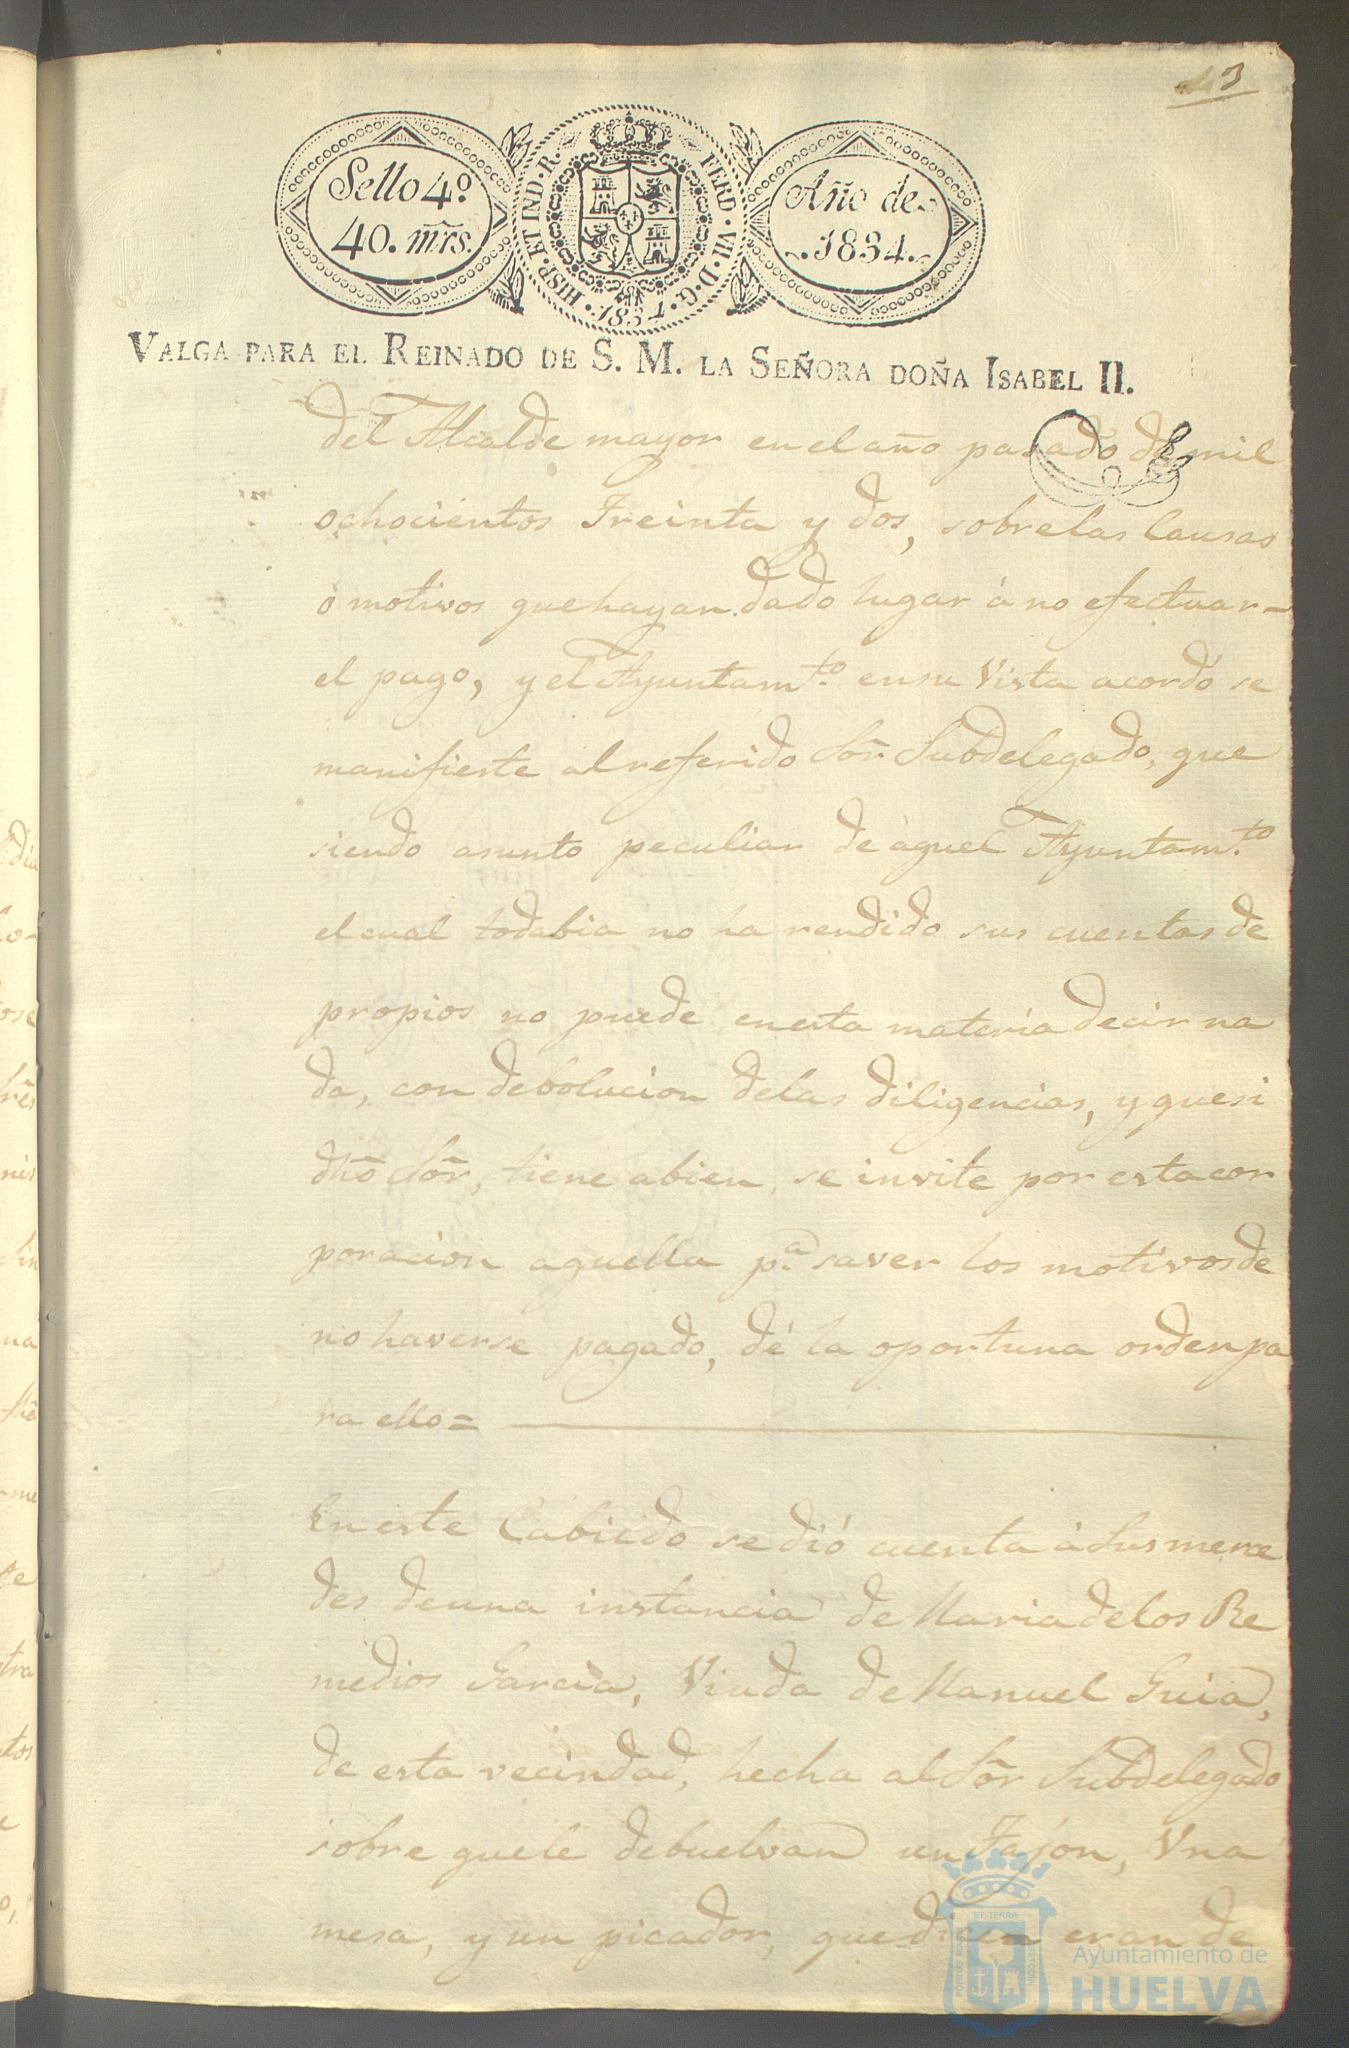 43
Sello 4º
40. mrs.
HISP. ET IND. R. FERD. VII. D. G. 1834.
Año de
1834.
VALGA PARA EL REINADO DE S. M. LA SEÑORA DOÑA ISABEL II.
del Alcalde mayor en el año pasado de mil
ochocientos Treinta y dos, sobre las Causas
ò motivos que hayan dado lugar à no efectuar-
el pago, y el Ayuntam.to en su Vista acordó se
manifieste al referido Sõr Subdelegado, que
siendo asunto peculiar de aquel Ayuntam.to
el cual todabia no ha rendido sus cuentas de
propios no puede en esta materia decir na
da, con debolucion de las diligencias, y que si
dhõ Sõr, tiene abien, se invite por esta cor
poracion aquella p.a saver los motivos de
no haverse pagado, dé la oportuna orden pa
ra ello =
En este Cabildo se dió cuenta à Sus merce
des de una instancia de Maria de los Re
medios Garcia, Viuda de Manuel Guia,
de esta vecindad, hecha al Sõr Subdelegado
sobre que le debuelvan un Tajon, Vna
mesa, y un picador, que dicen eran de
Ayuntamiento de
HUELVA